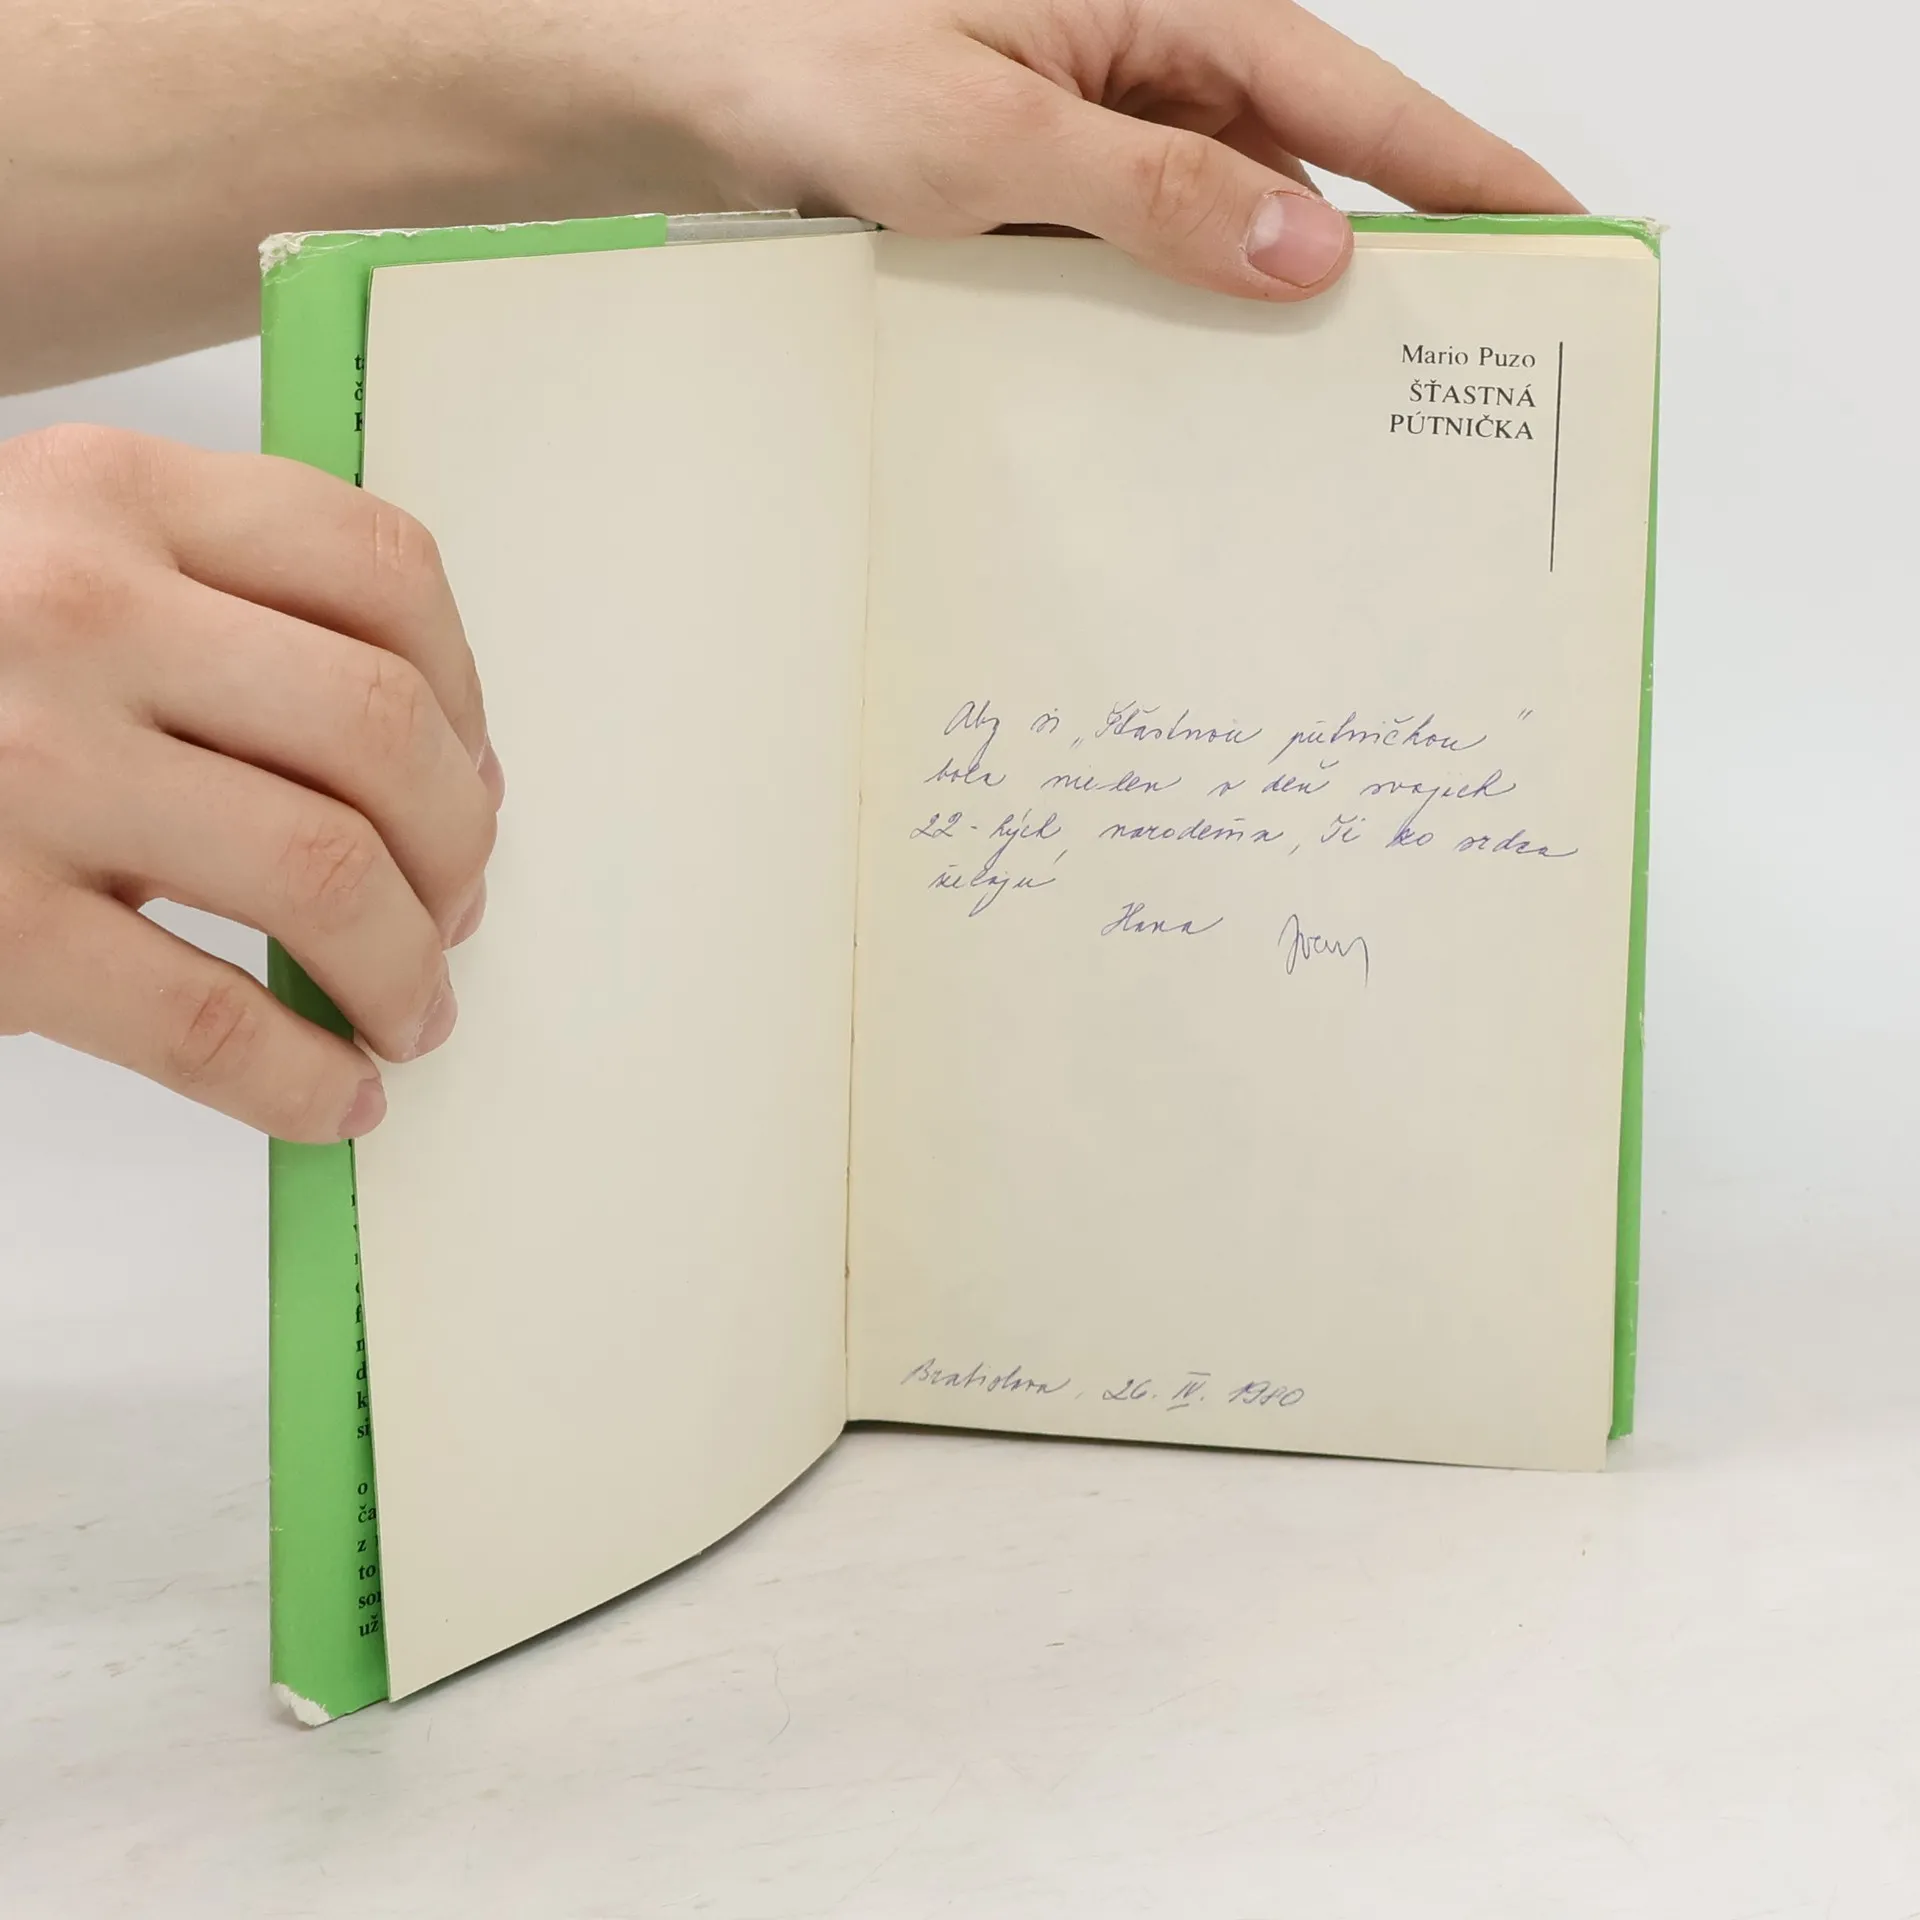 Mario Puzo
ŠŤASTNÁ
PÚTNIČKA
Aby si „Šťastnou pútničkou“
bola nie len v deň svojich
22-hých narodenín, Ti zo srdca
želajú
Hana Ivan
Bratislava, 26. IV. 1980
o
ča
z
to
so
už